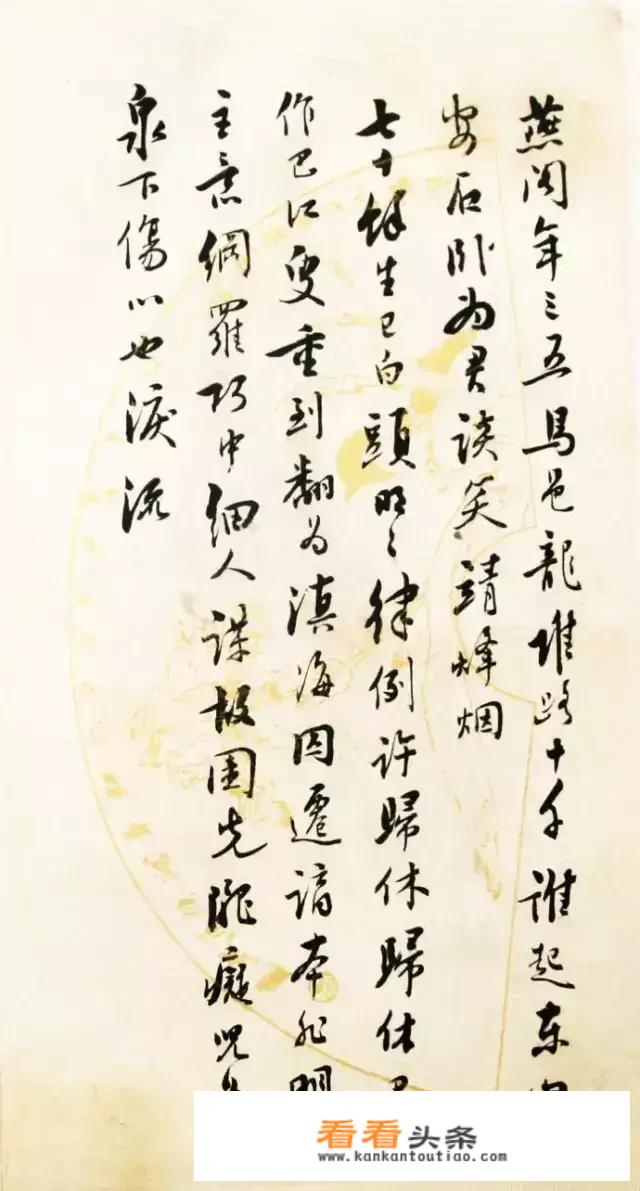 燕閨年三五馬邑龍堆路十千誰起东
安石卧为君談笑靖烽烟
七十餘生已白頭明〻律例許歸休歸休已
作巴江叟重到翻为滇海囚遷謫本非明
主意網羅巧中細人謀故園先隴癡兒
泉下傷心也淚流
看看头条
www.kankantoutiao.com